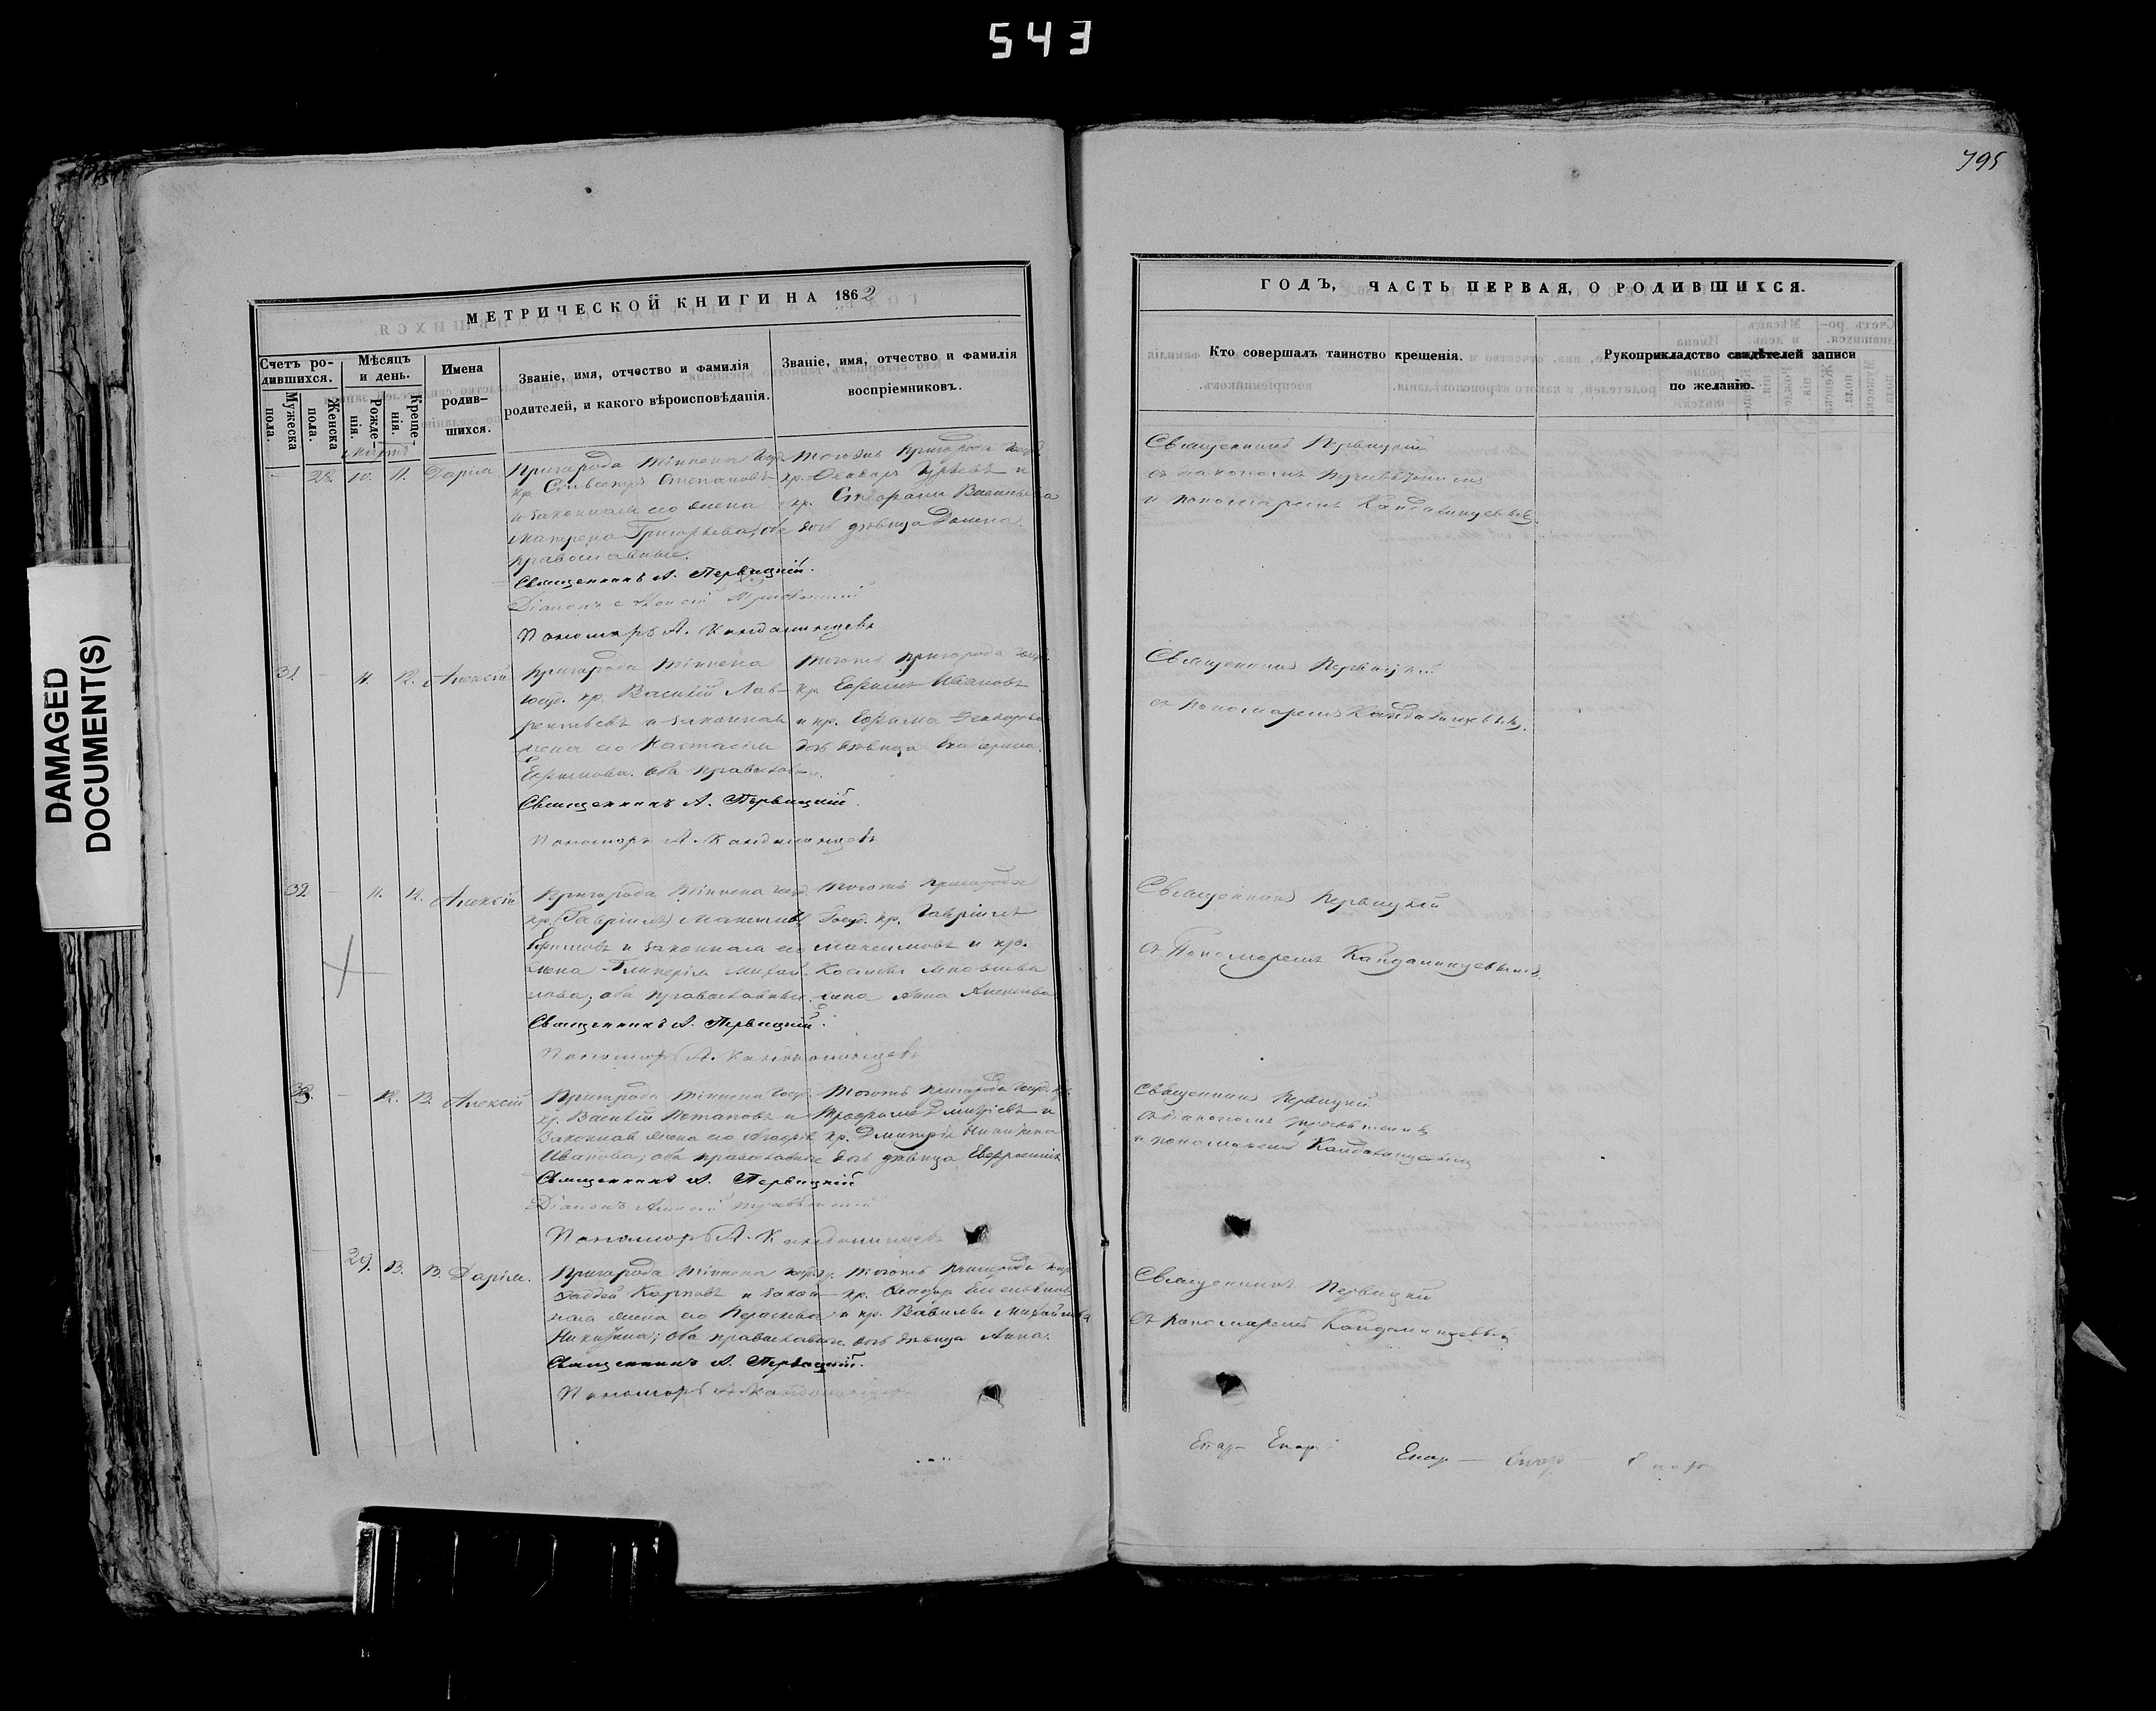 543
795
DAMAGED
DOCUMENT(S)
МЕТРИЧЕСКОЙ КНИГИ НА 1862
Счетъ ро-
дившихся.
Мужеска
пола.
Женска
пола.
Мѣсяцъ
и день.
Рожде-
нія.
Креще-
нія.
Имена
родив-
шихся.
Званіе, имя, отчество и фамилія
родителей, и какого вѣроисповѣданія.
Званіе, имя, отчество и фамилія
воспріемниковъ.
Мартъ
28. 10. 11. Дарія
Пригорода Тіинска Госуд.
кр. Сильвестръ Степановъ
и законная его жена
Матрена Григорьева, оба
православные.
Священникъ А. Первицкій.
Пономарь А. Кандалинцевъ
Тогожъ Пригорода Госуд.
кр. Ѳеодоръ Гурьевъ и
кр. Стефана Васильева
дочь дѣвица Домна.
31. – 11. 12. Алексій
Пригорода Тіинска
Госуд. кр. Василій Лав-
рентьевъ и законная
жена его Настасія
Ефимова. оба православные.
Священникъ А. Первицкій.
Пономарь А. Кандалинцевъ
Тогожъ Пригорода Госуд.
кр. Ефимъ Ивановъ
и кр. Ефима Ѳеодорова
дочь дѣвица Екатерина.
32 – 11. 12. Алексій
Пригорода Тіинска Госуд.
кр. (Гавріилъ)
Ефимовъ и законная его
жена Гликерія Михай-
лова; оба православные.
Священникъ А. Первицкій.
Пономарь А. Кандалинцевъ
Тогожъ Пригорода
Госуд. кр. Гавріилъ
Максимовъ и кр.
Косьмы
жена Анна Алексѣева
33. – 12. 13. Алексій
Пригорода Тіинска Госуд.
кр. Василій Потаповъ и
Законная жена его
Иванова; оба православные
Священникъ А. Первицкій
Діаконъ Алексій
Пономарь А. Кандалинцевъ
Тогожъ Пригорода Госуд. кр.
Трофимъ Дмитріевъ и
кр. Дмитрія Никитина
дочь дѣвица Евфросинія
29. 13. 13. Дарія.
Пригорода Тіинска Госуд.
Фаддей Карповъ и закон-
ная жена его Параскева
Никитина; оба православные.
Священникъ А. Первицкій.
Пономарь А. Кандалинцевъ
Тогожъ Пригорода Госуд.
кр. Ѳеодоръ Емельяновъ
и кр. Вавилы Михайлова
дочь дѣвица Анна.
ГОДЪ, ЧАСТЬ ПЕРВАЯ, О РОДИВШИХСЯ.
Кто совершалъ таинство крещенія.
Рукоприкладство свидѣтелей записи
по желанію.
Священникъ Первицкій
съ діакономъ
и пономаремъ Кандалинцевымъ.
Священникъ Первицкій
съ пономаремъ Кандалинцевымъ.
Священникъ Первицкій
съ Пономаремъ Кандалинцевымъ.
Священникъ Первицкій
съ діакономъ
и пономаремъ Кандалинцевымъ
Священникъ Первицкій
съ пономаремъ Кандалинцевымъ
Епар Епар Епар – Епар – Епар